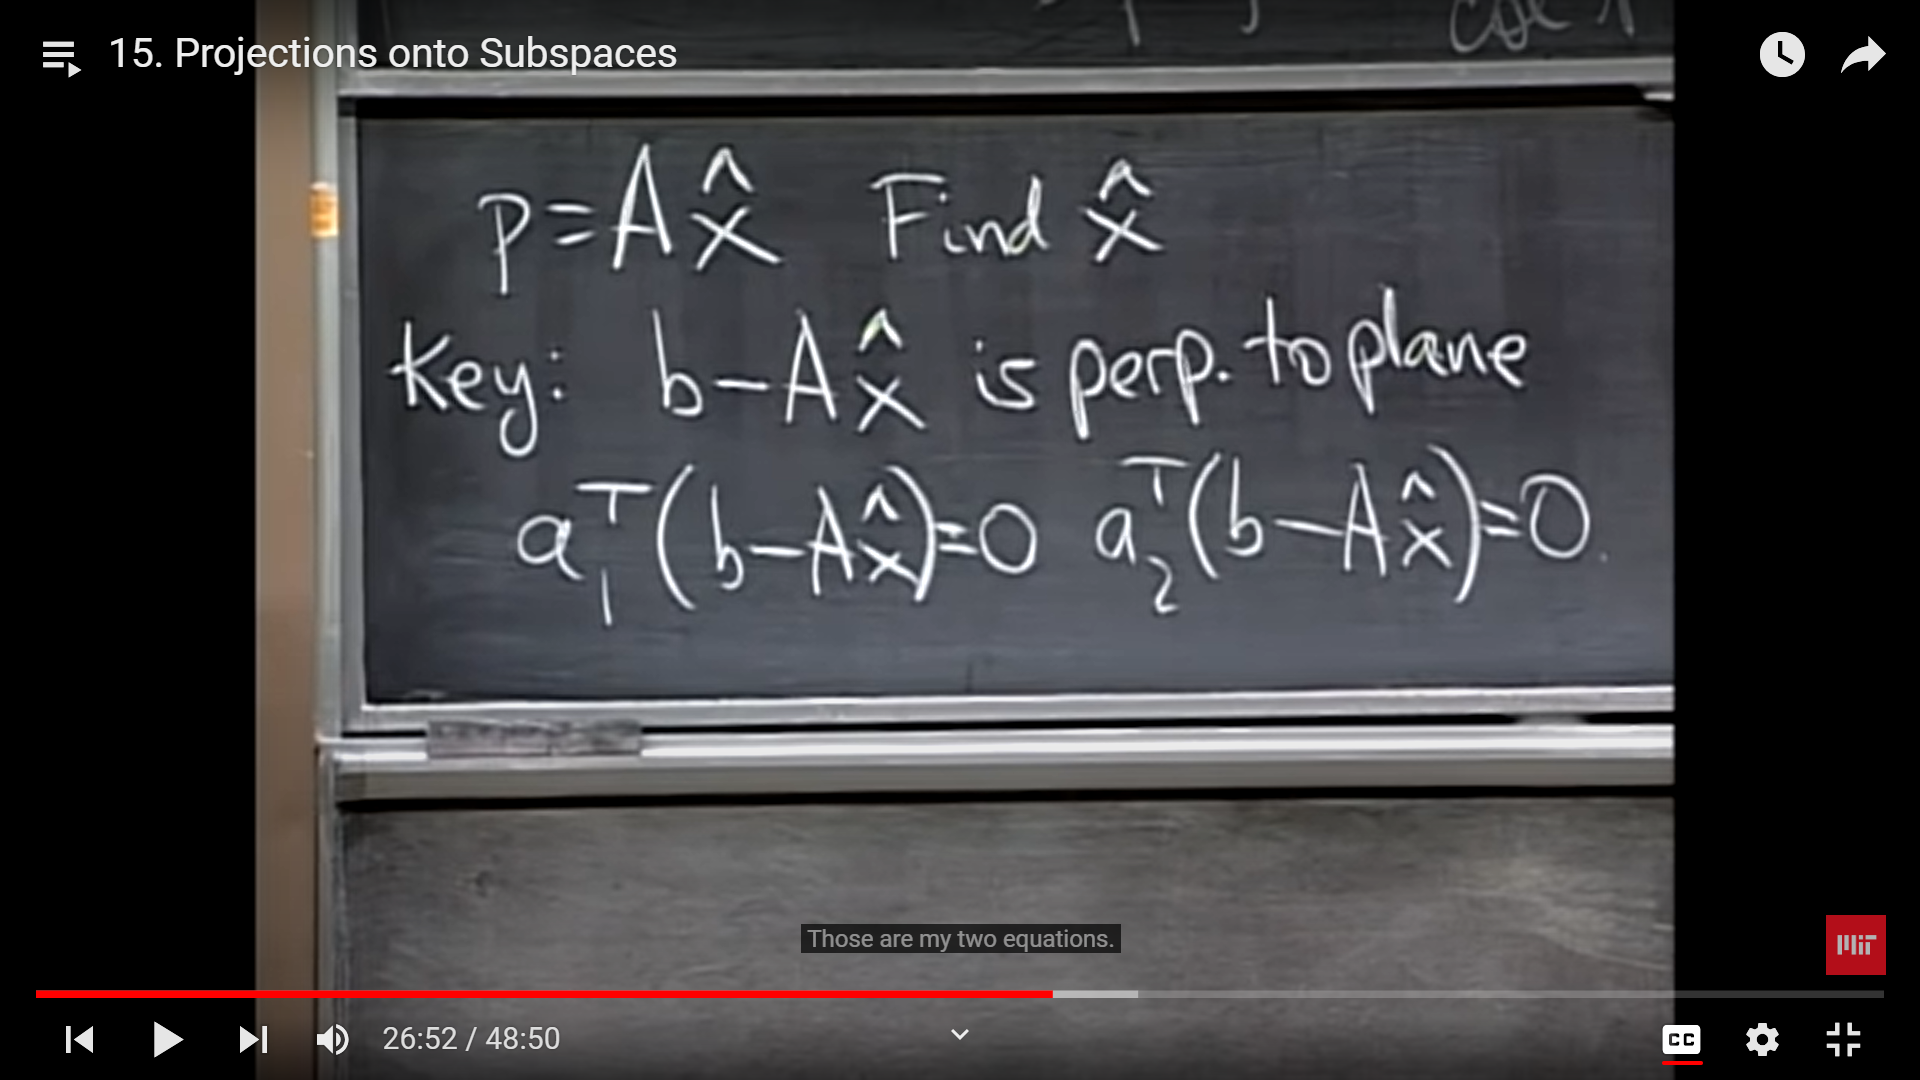 15. Projections onto Subspaces
p = A x̂ Find x̂
Key: b - A x̂ is perp. to plane
a₁ᵀ(b - A x̂) = 0 a₂ᵀ(b - A x̂) = 0.
Those are my two equations.
MIT
26:52 / 48:50
CC